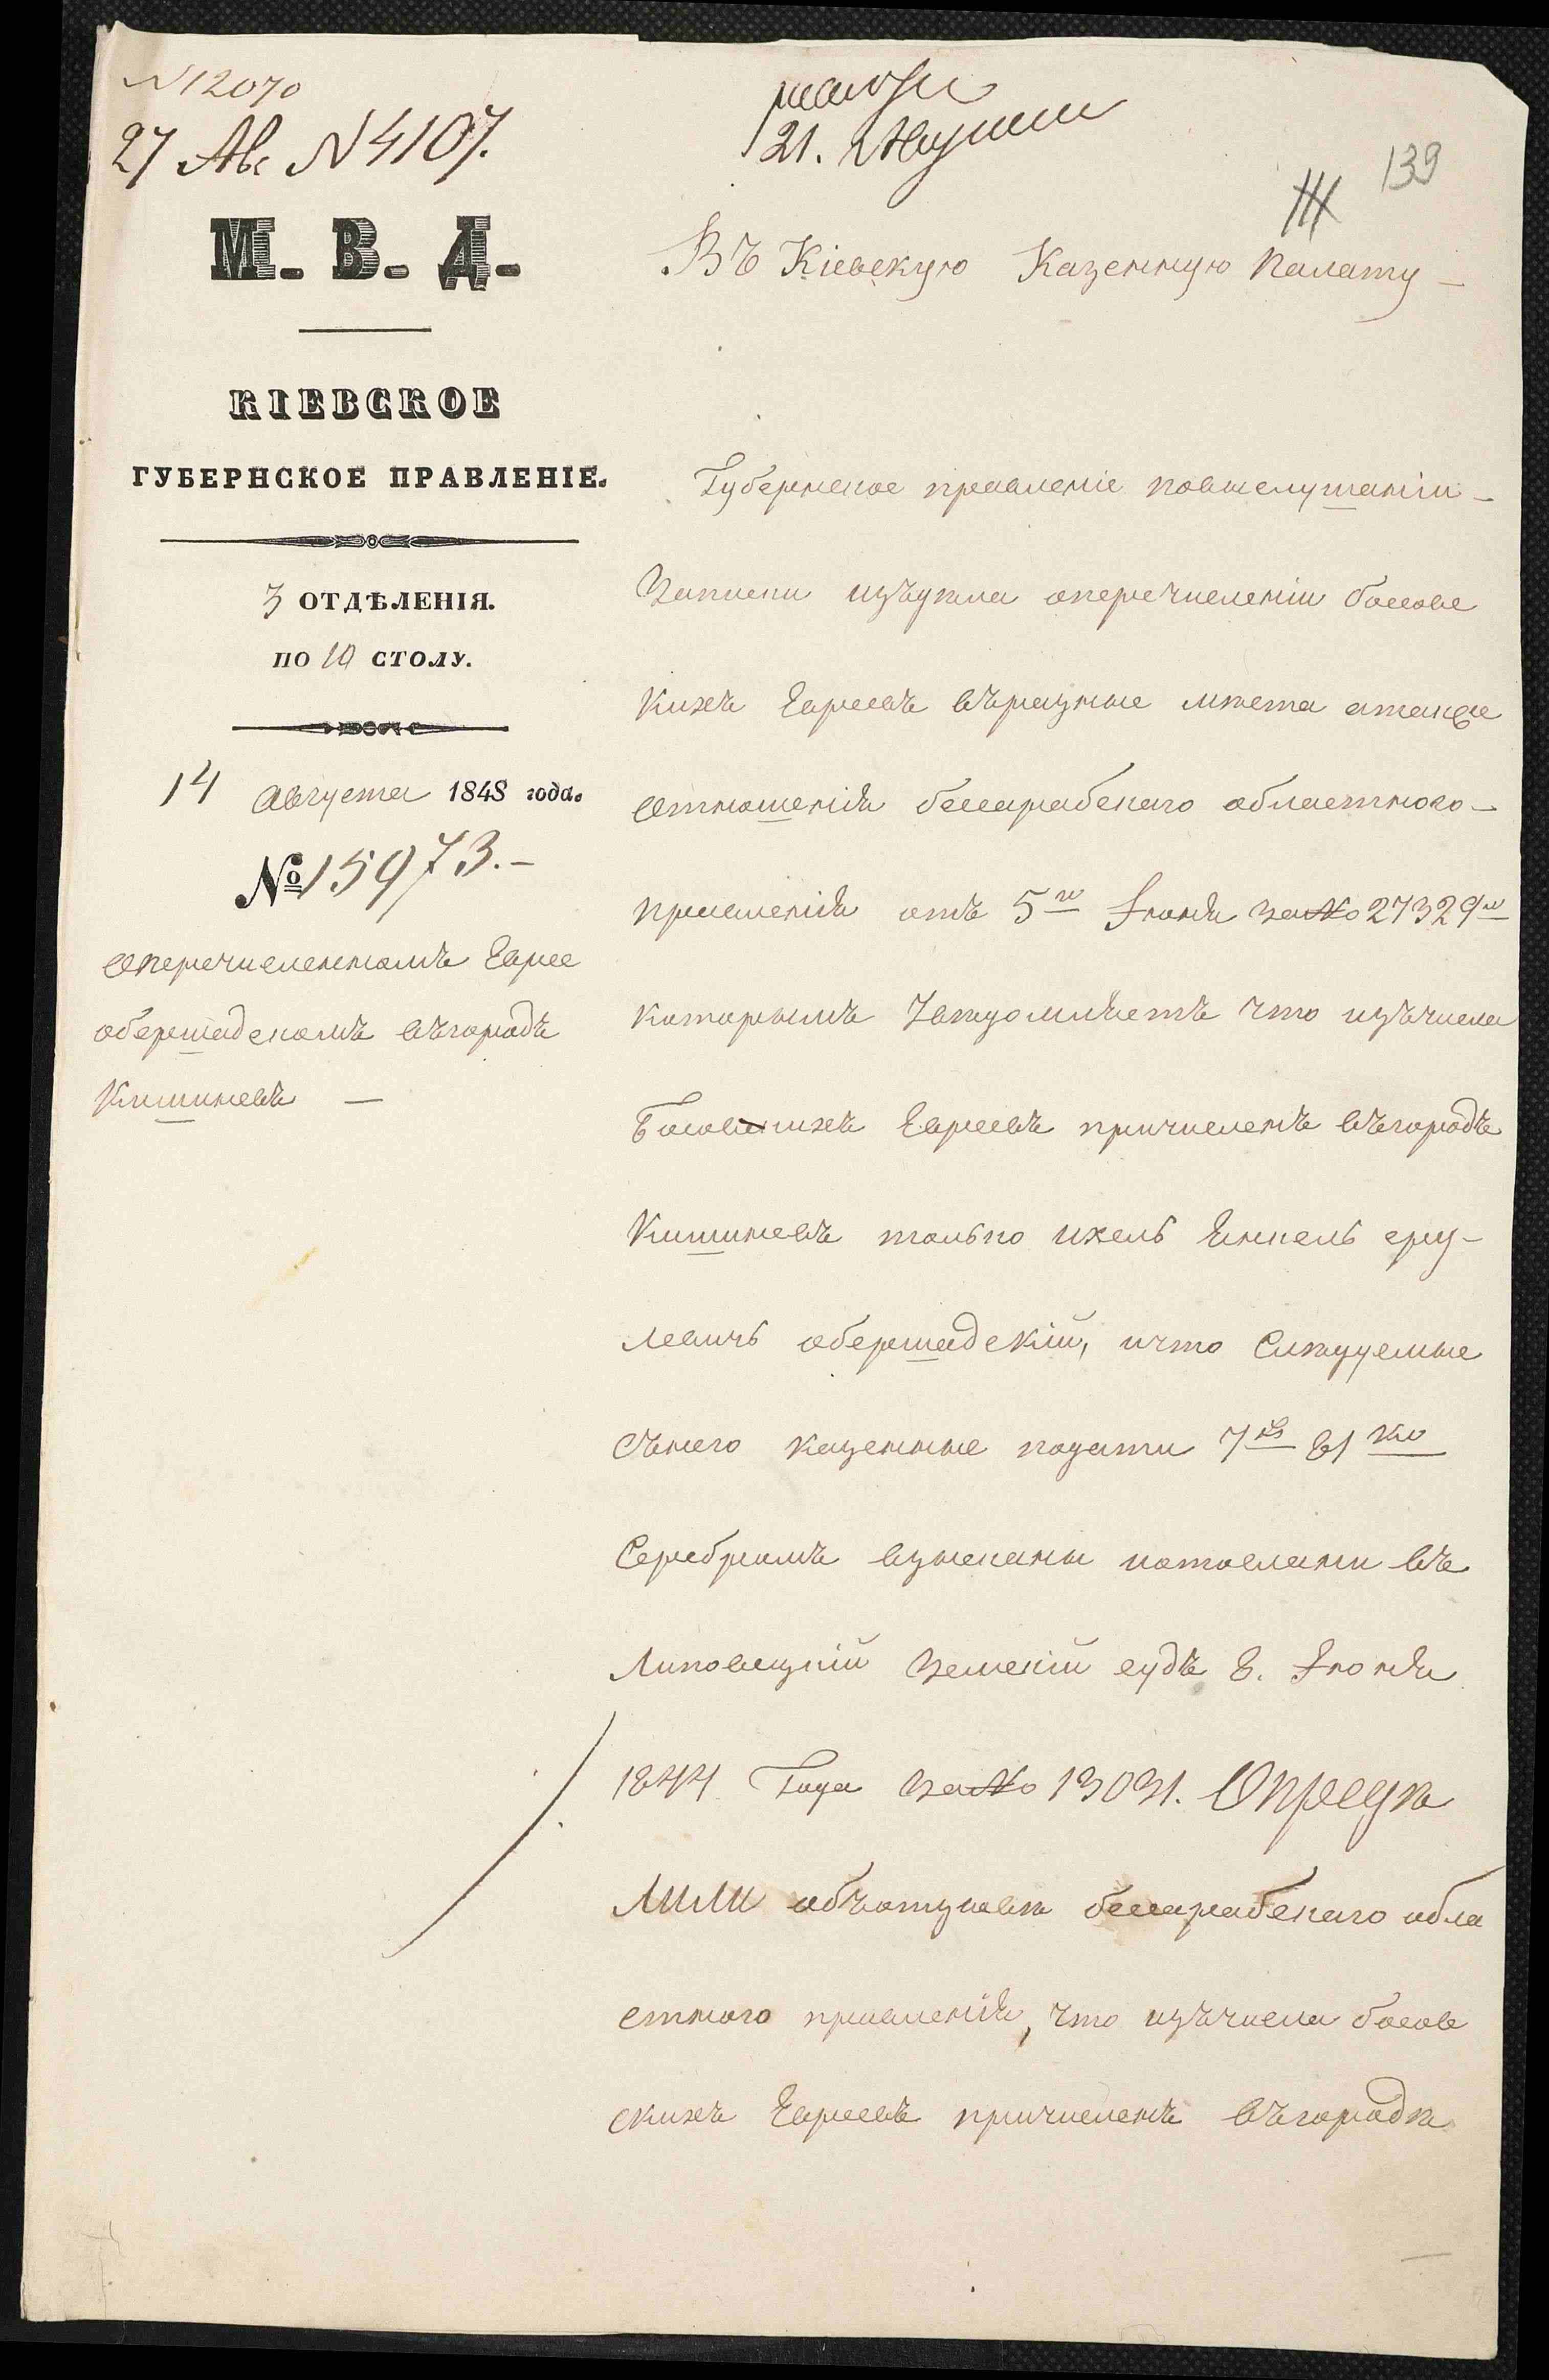 N 12070
27 Авг N 4107.
21.
139
М. В. Д.
КІЕВСКОЕ
ГУБЕРНСКОЕ ПРАВЛЕНІЕ.
3 ОТДѢЛЕНІЯ.
ПО 10 СТОЛУ.
14 августа 1848 года.
№ 15973.-
Оперечисленномъ Еврее
обершадскомъ въгородъ
Кишиневъ —
Въ Кіевскую Казенную Палату —
Губернское правленіе повыслушаніи
Записки изъдѣла оперечисленіи босов
кихъ Евреевъ въразные мѣста атакже
Отношенія бессарабскаго областного
правленія отъ 5го Іюня за№ 27329м
которымъ Увѣдомляетъ что изъчисла
Босовскихъ Евреевъ причисленъ въгородъ
Кишиневъ только ихель Янкель сру-
левичъ обершадскій, ичто Слѣдуемые
Снего казенные подати 7 р 81 ко
Серебромъ взысканы иотосланы въ
Липовецкій Земскій судъ 8. Іюня
1844 Года за№ 13031. Опредѣ
лили объотзывѣ бессарабскаго обла
стного правленія, что изъчисла босов
скихъ Евреевъ причисленъ въгородѣ